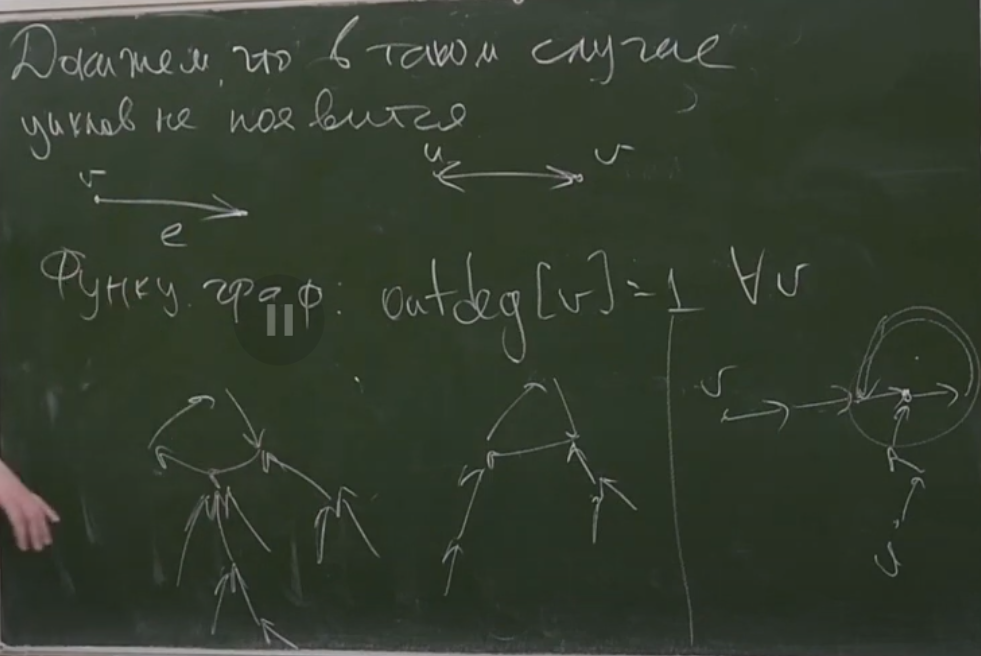 Докажем, что в таком случае
циклов не появится
v
u v
e
Функ. граф: outdeg[v]=1 ∀v
v
v